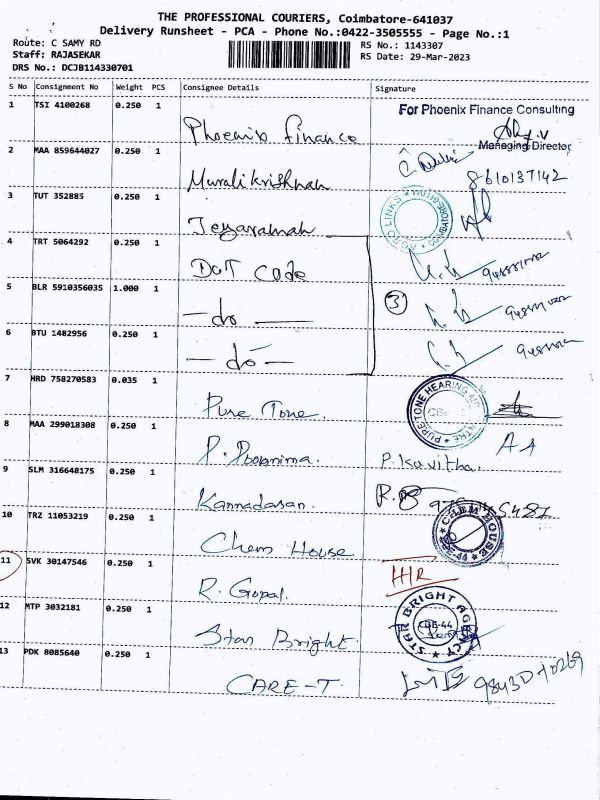 THE PROFESSIONAL COURIERS, Coimbatore-641037
Delivery Runsheet - PCA - Phone No.:0422-3505555 - Page No.:1
Route: C SAMY RD
Staff: RAJASEKAR
DRS No.: DCJB114330701
RS No.: 1143307
RS Date: 29-Mar-2023
S No Consignment No Weight PCS Consignee Details Signature
1 TSI 4100268 0.250 1 Phoenix Finance For Phoenix Finance Consulting
Managing Director
2 MAA 859644027 0.250 1 Muralikrishnah 8610137142
3 TUT 352885 0.250 1 Jeyaramah AGRO LINKS
4 TRT 5064292 0.250 1 Dot Code
5 BLR 5910356035 1.000 1 -do- 3
6 BTU 1482956 0.250 1 -do-
7 HRD 758270583 0.035 1 Pure Tone PURE TONE HEARING
8 MAA 299018308 0.250 1 P. Poornima. P. Kavitha.
9 SLM 316648175 0.250 1 Kannadasan.
10 TRZ 11053219 0.250 1 Chem House CHEM HOUSE
11 SVK 30147546 0.250 1 R. Gopal.
12 MTP 3032181 0.250 1 Star Bright STAR BRIGHT AGENCY CBE-44
13 PDK 8085640 0.250 1 CARE-T.